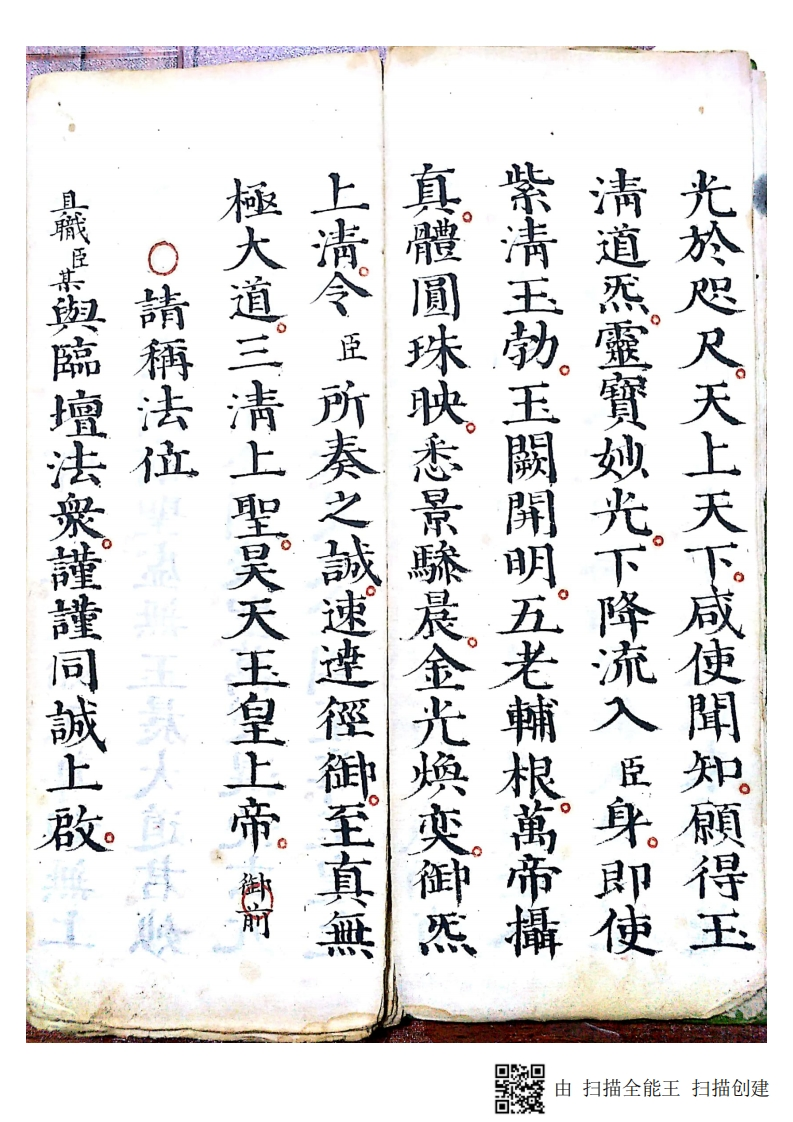 光於咫尺天上天下咸使聞知願得玉
清道炁靈寶妙光下降流入臣身即使
紫清玉勃玉闕開明五老輔根萬帝攝
真體圓珠映悉景驂晨金光煥奕御炁
上清令臣所奏之誠速達徑御至真無
極大道三清上聖昊天玉皇上帝御前
〇請稱法位
具職臣某與臨壇法衆謹謹同誠上啟
由 扫描全能王 扫描创建